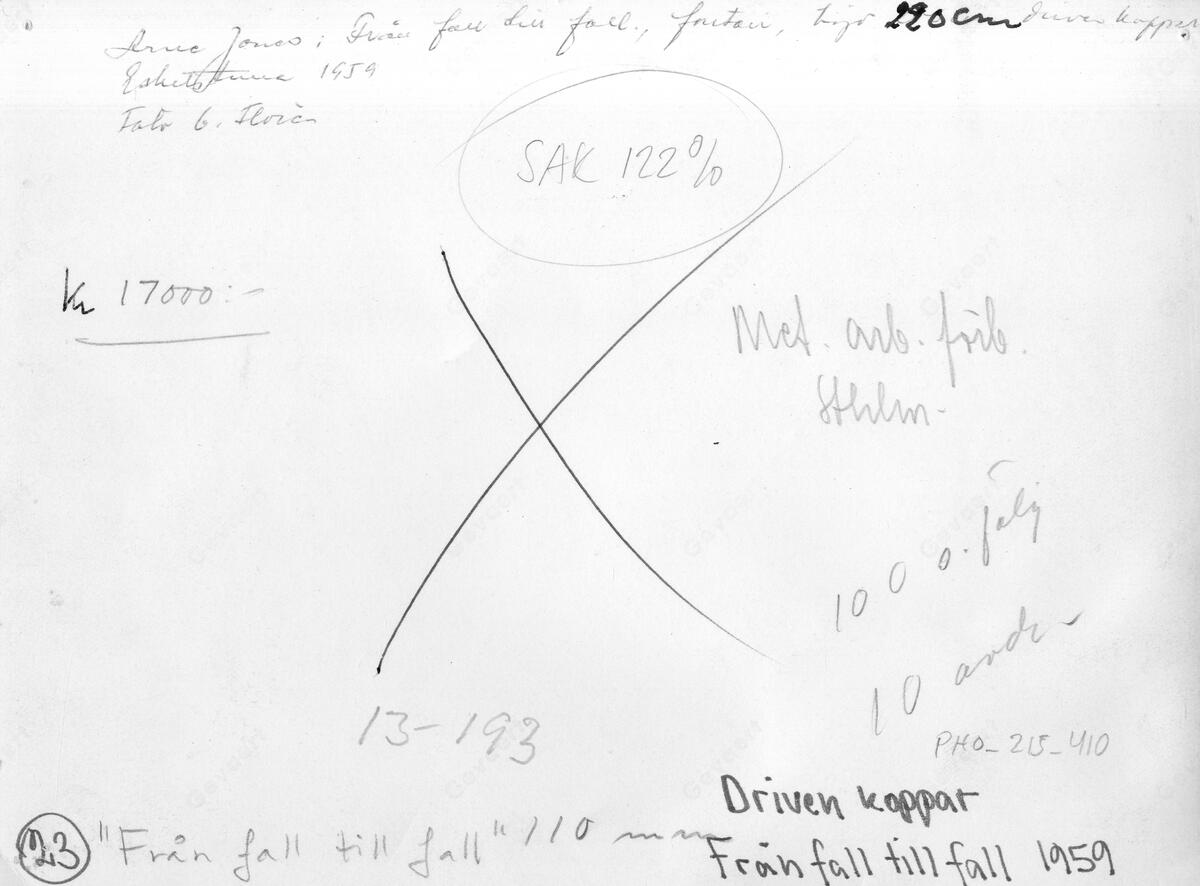 Arne Jones: Från fall till fall., fontän, höjd 220cm driven koppar
Eskilstuna 1959
Foto G.
SAK 122%
Kr 17000:-
Met. arb. förb.
Sthlm-
100 o. följ
10 andra
13-193
PHO_215_410
Driven koppar
23 "Från fall till fall" 110 mm
Från fall till fall 1959
Gevaert